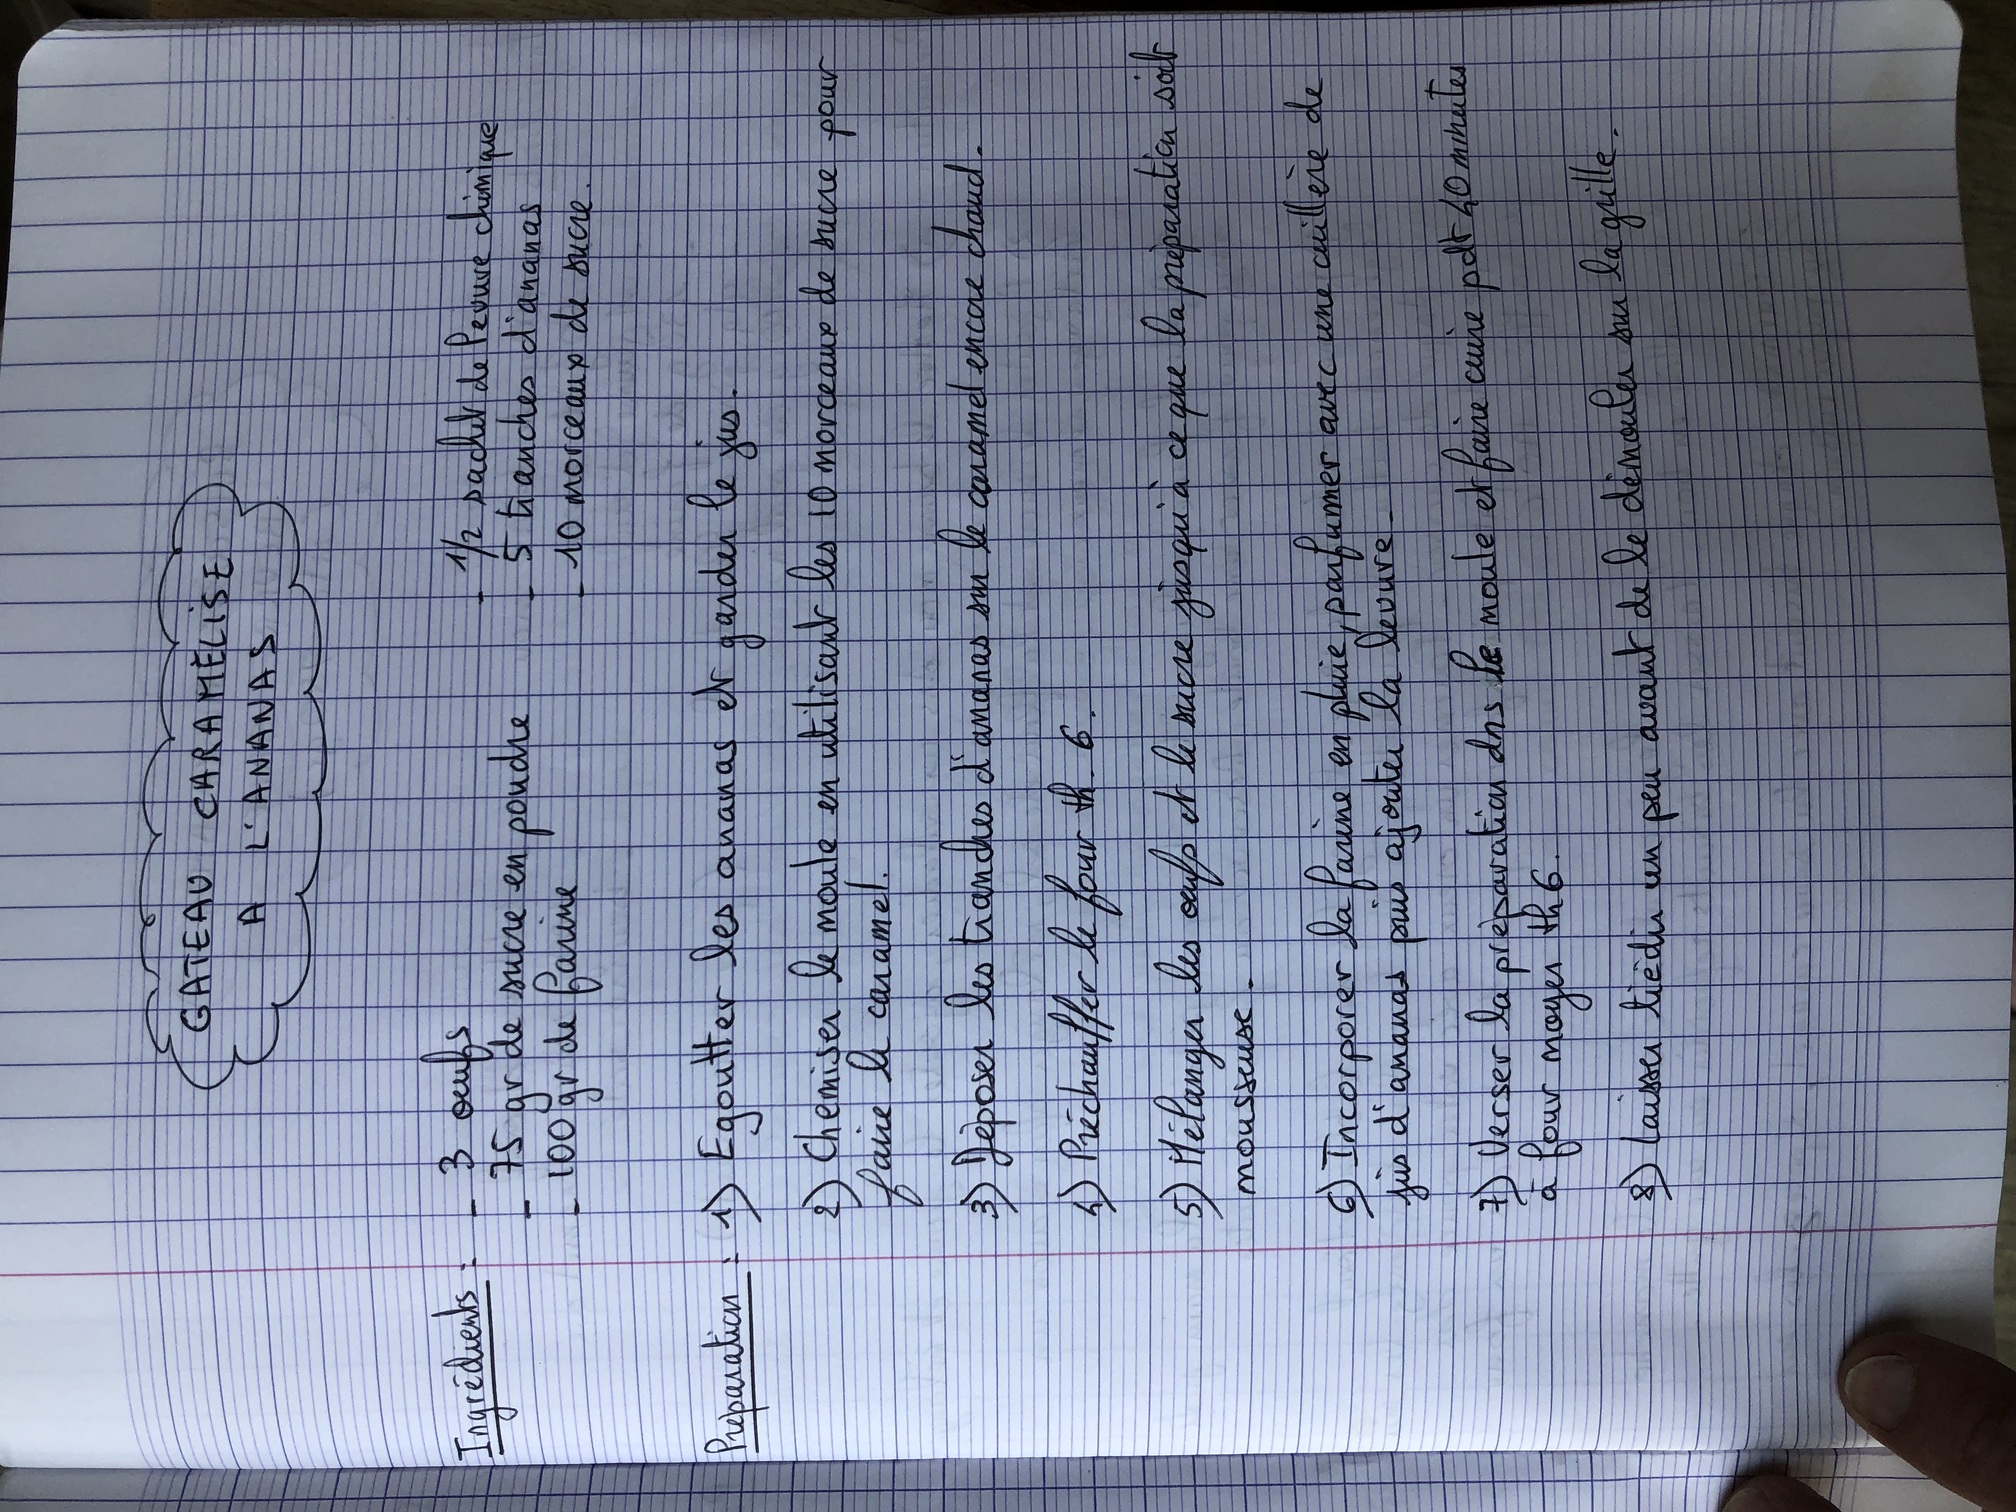 GATEAU CARAMÉLISE
A L'ANANAS
Ingrédients : - 3 oeufs
- 75 gr de sucre en poudre
- 100 gr de farine
- 1/2 sachet de levure chimique
- 5 tranches d'ananas
- 10 morceaux de sucre.
Préparation : 1) Egoutter les ananas et garder le jus.
2) Chemiser le moule en utilisant les 10 morceaux de sucre pour
faire le caramel.
3) Déposer les tranches d'ananas sur le caramel encore chaud.
4) Préchauffer le four th. 6.
5) Mélanger les oeufs et le sucre jusqu'à ce que la préparation soit
mousseuse.
6) Incorporer la farine en pluie, parfumer avec une cuillère de
jus d'ananas puis ajouter la levure.
7) Verser la préparation dns le moule et faire cuire pdt 40 minutes
à four moyen th 6.
8) laisser tiédir un peu avant de le démouler sur la grille.